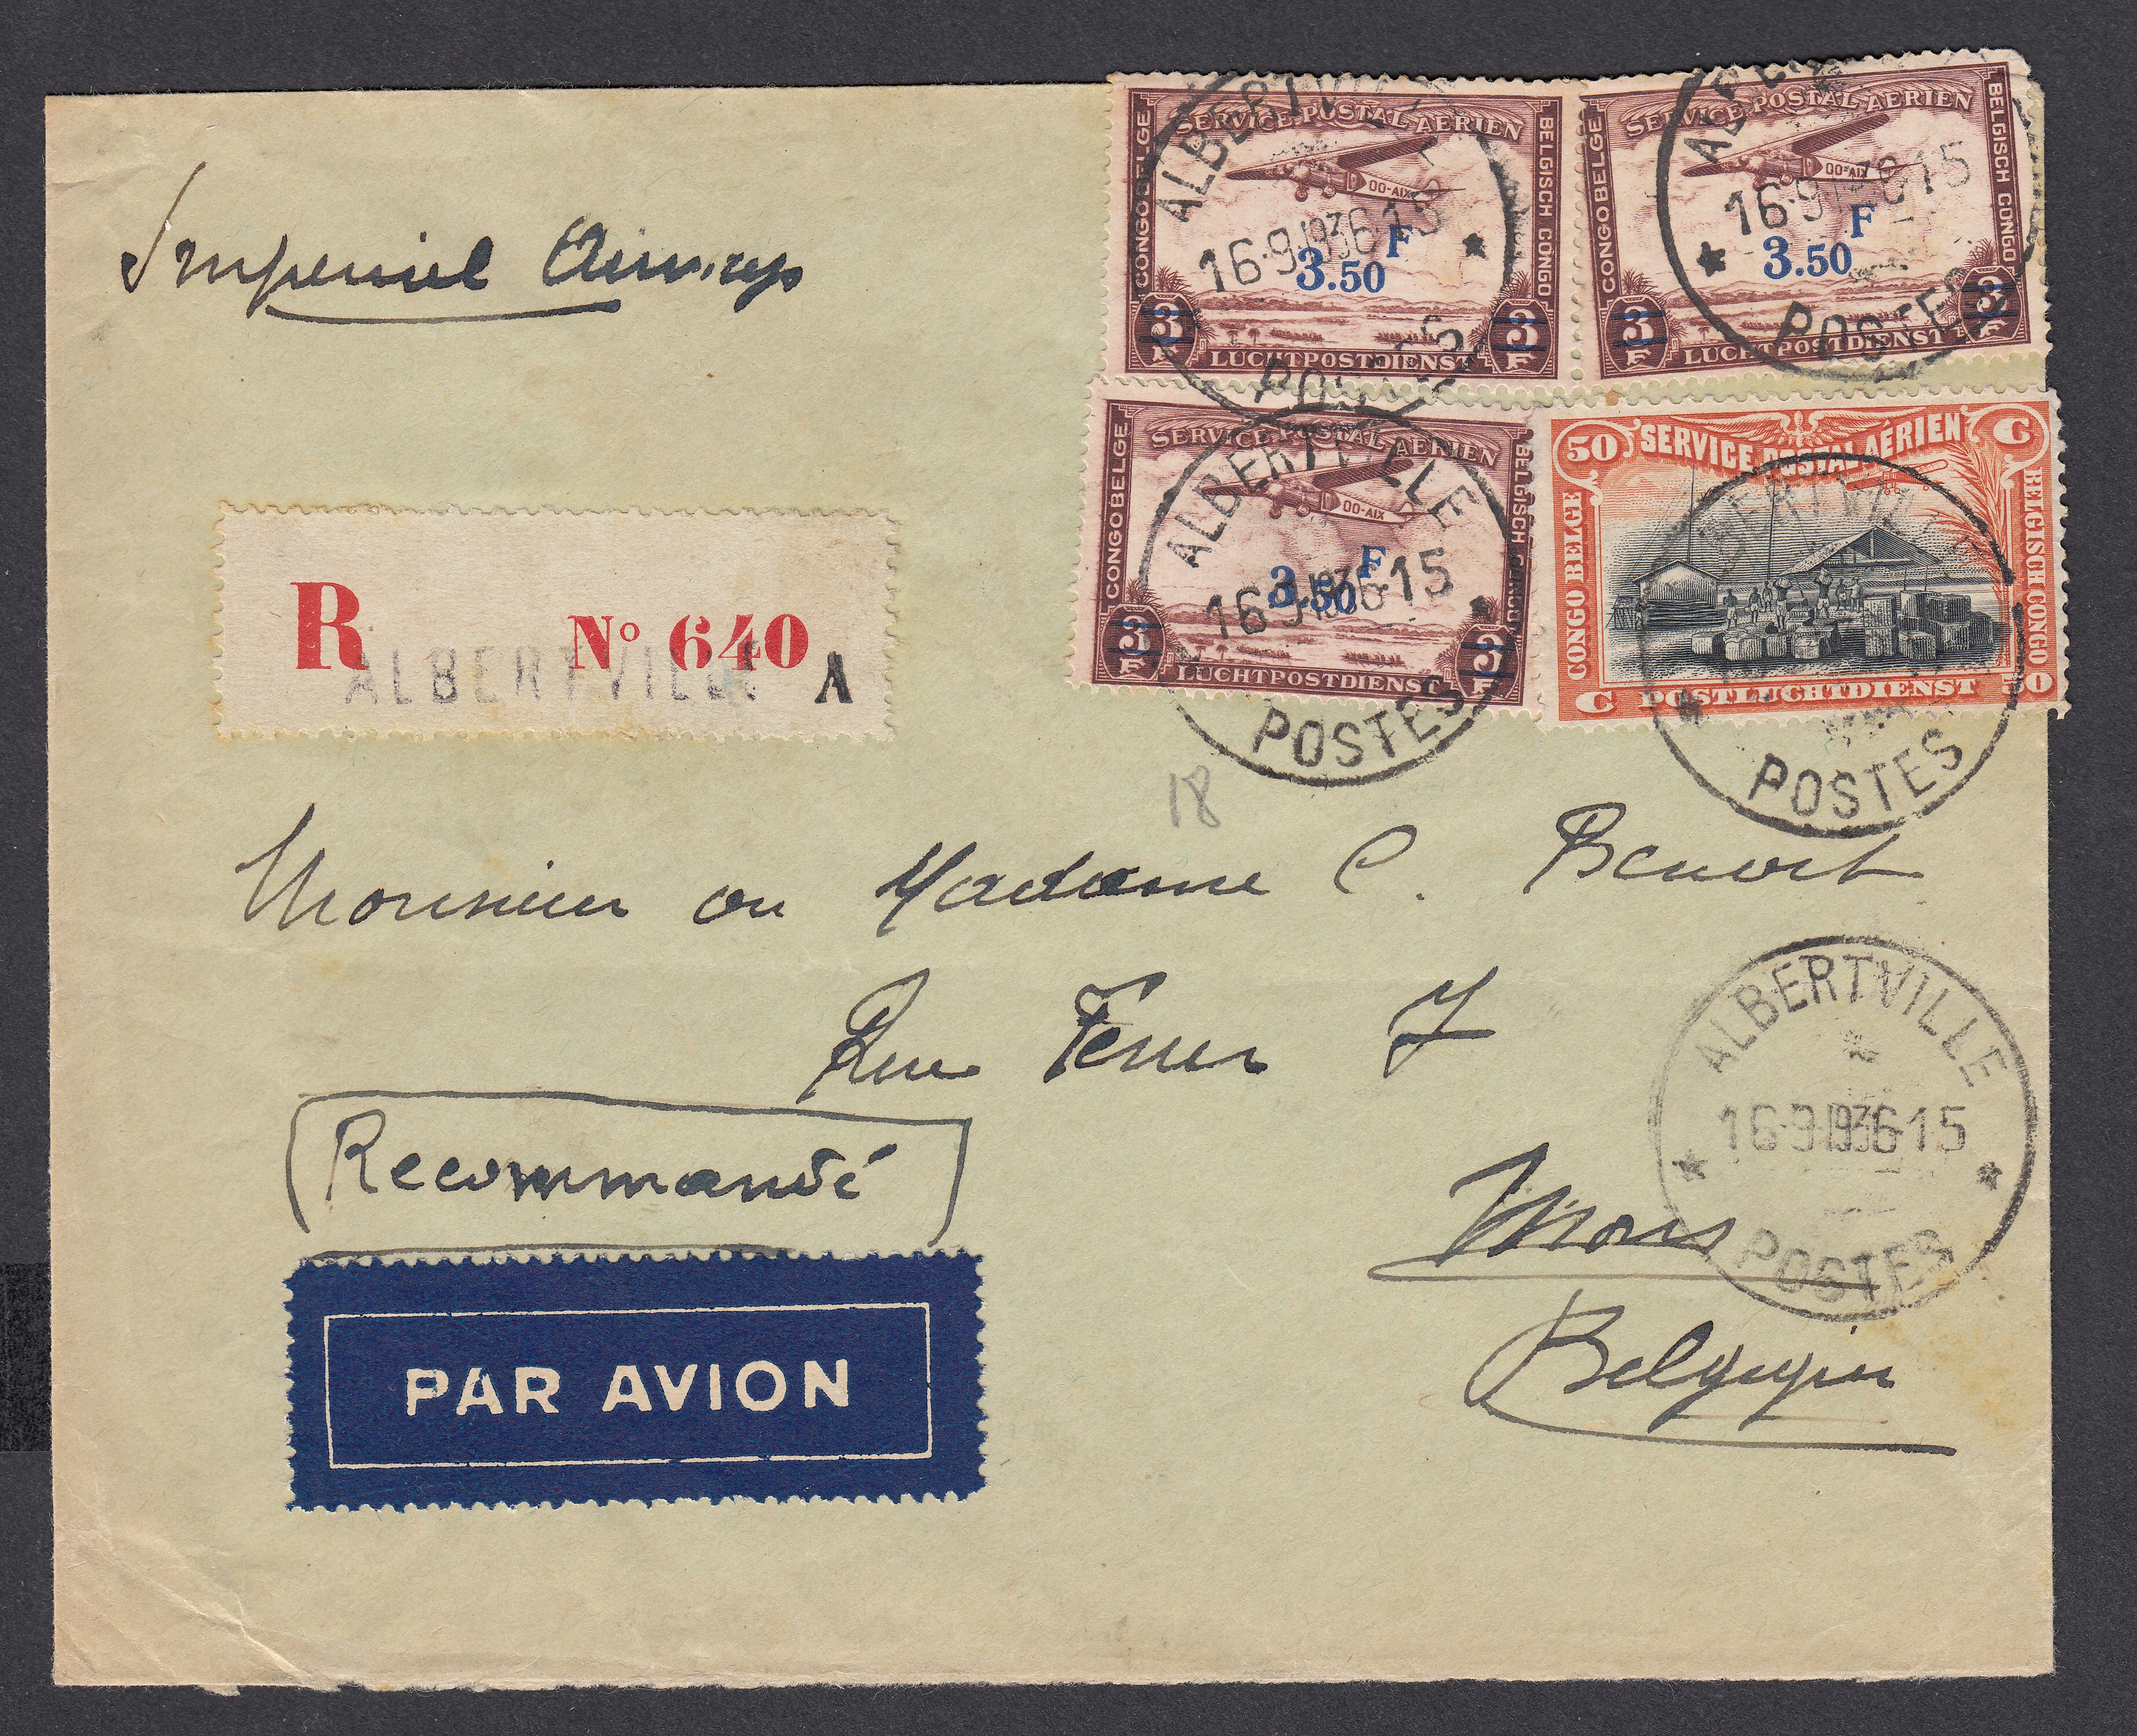 Imperial Airways
CONGO BELGE
SERVICE POSTAL AÉRIEN
BELGISCH CONGO
OO-AIX
3.50 F
3 F
3 F
LUCHTPOSTDIENST
ALBERTVILLE
16-9-1936-15
POSTES
CONGO BELGE
SERVICE POSTAL AÉRIEN
BELGISCH CONGO
OO-AIX
3.50 F
3 F
3 F
LUCHTPOSTDIENST
16-9-1936-15
POSTES
CONGO BELGE
SERVICE POSTAL AÉRIEN
BELGISCH CONGO
OO-AIX
3.50 F
3 F
3 F
LUCHTPOSTDIENST
ALBERTVILLE
16-9-1936-15
POSTES
50 SERVICE POSTAL AÉRIEN C
CONGO BELGE
BELGISCH CONGO
C POSTLUCHTDIENST 50
ALBERTVILLE
POSTES
R Nº 640
ALBERTVILLE A
18
Monsieur ou Madame C. Benoit
Rue Ferrer 7
ALBERTVILLE
16-9-1936-15
POSTES
Recommandé
Mons
Belgique
PAR AVION